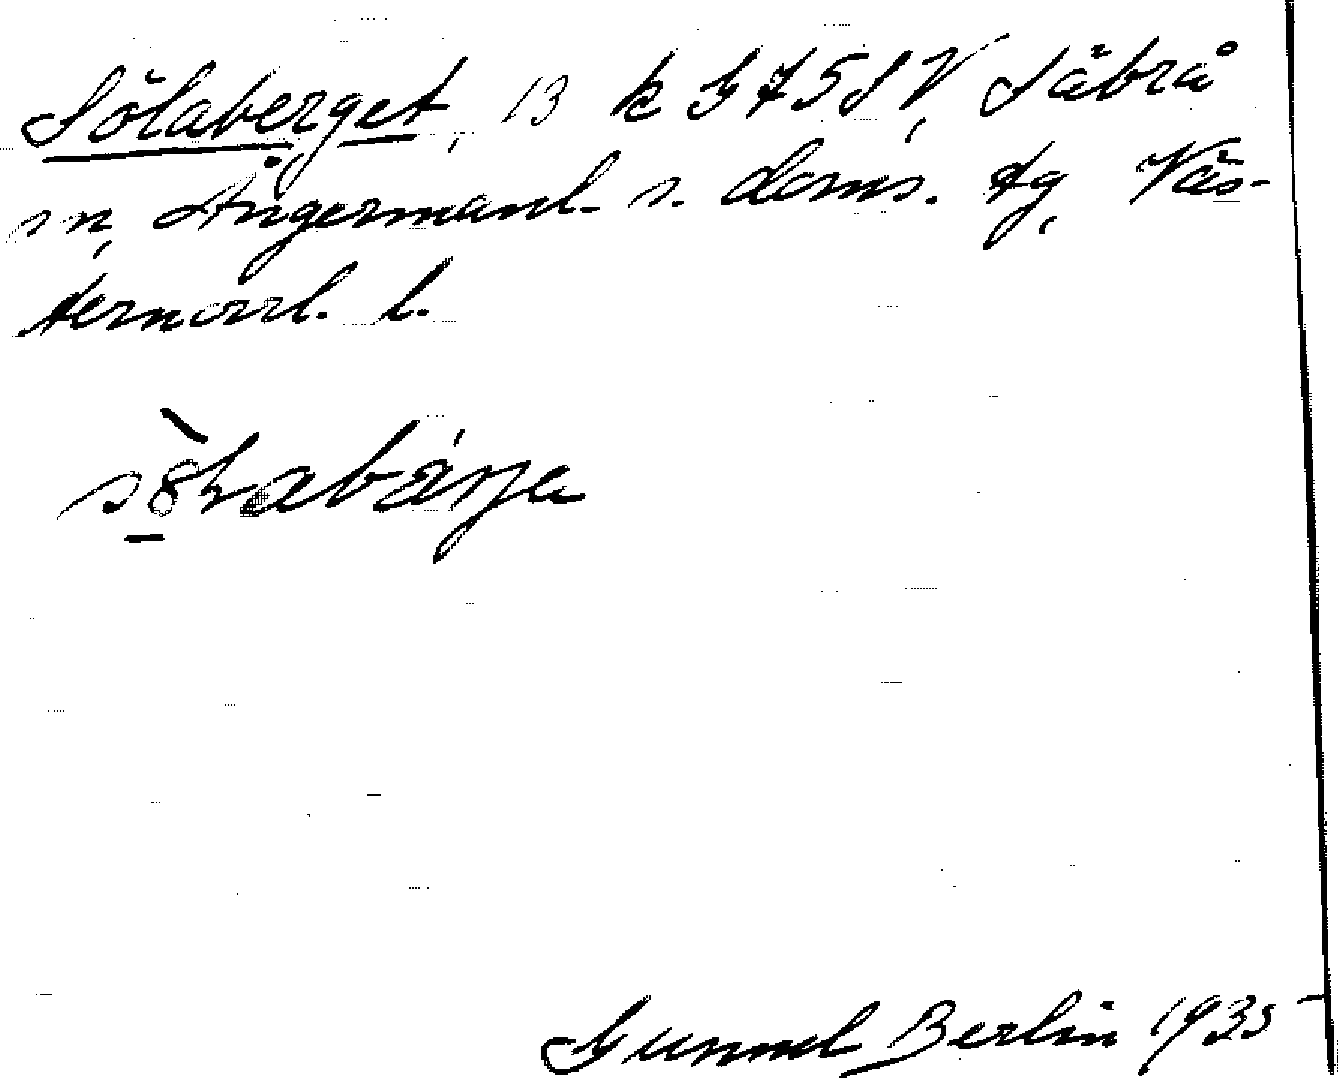 Sölaberget, 13 k G 75 SV, Säbrå
sn, Ångermanl. s. doms. tg, Väs-
ternorrl. l.
Gunnel Berlin 1935